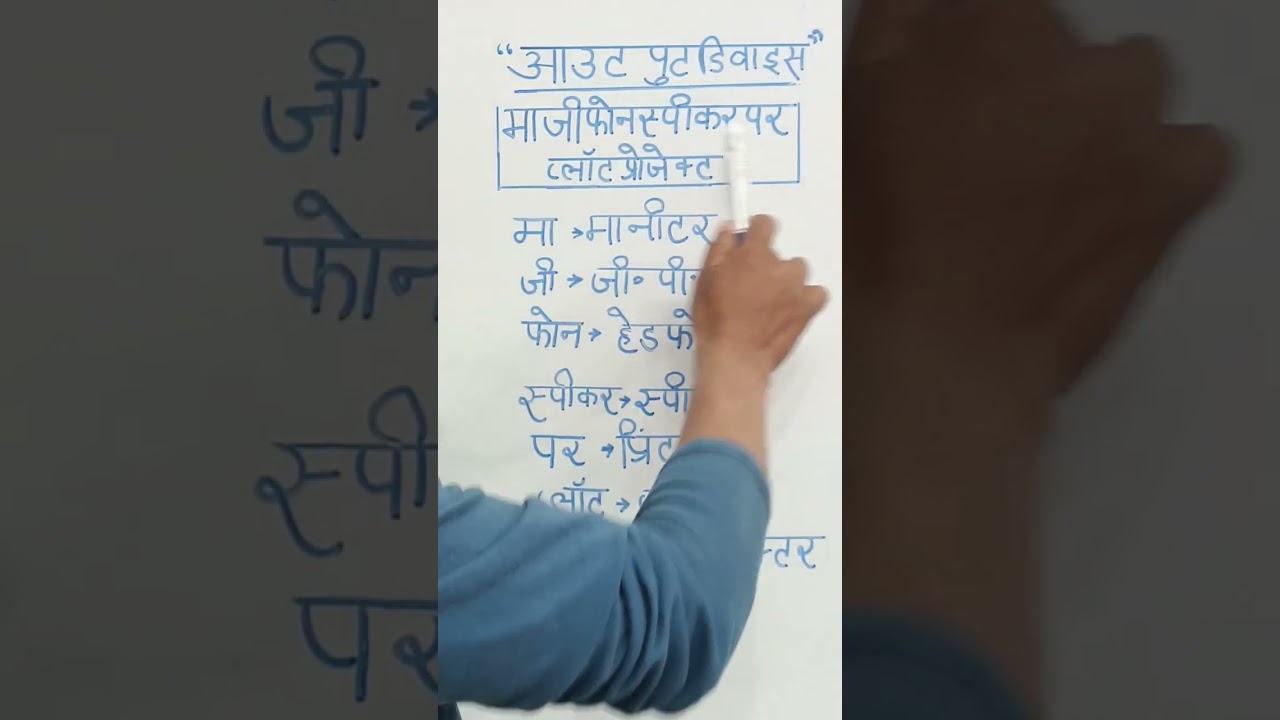 “आउट पुट डिवाइस”
माजीफोनस्पीकरपर
प्लॉट प्रोजेक्ट
मा → मानीटर
जी → जी॰ पी॰
फोन → हेडफो
स्पीकर → स्पी
पर → प्रिंट
प्लॉट →
क्टर